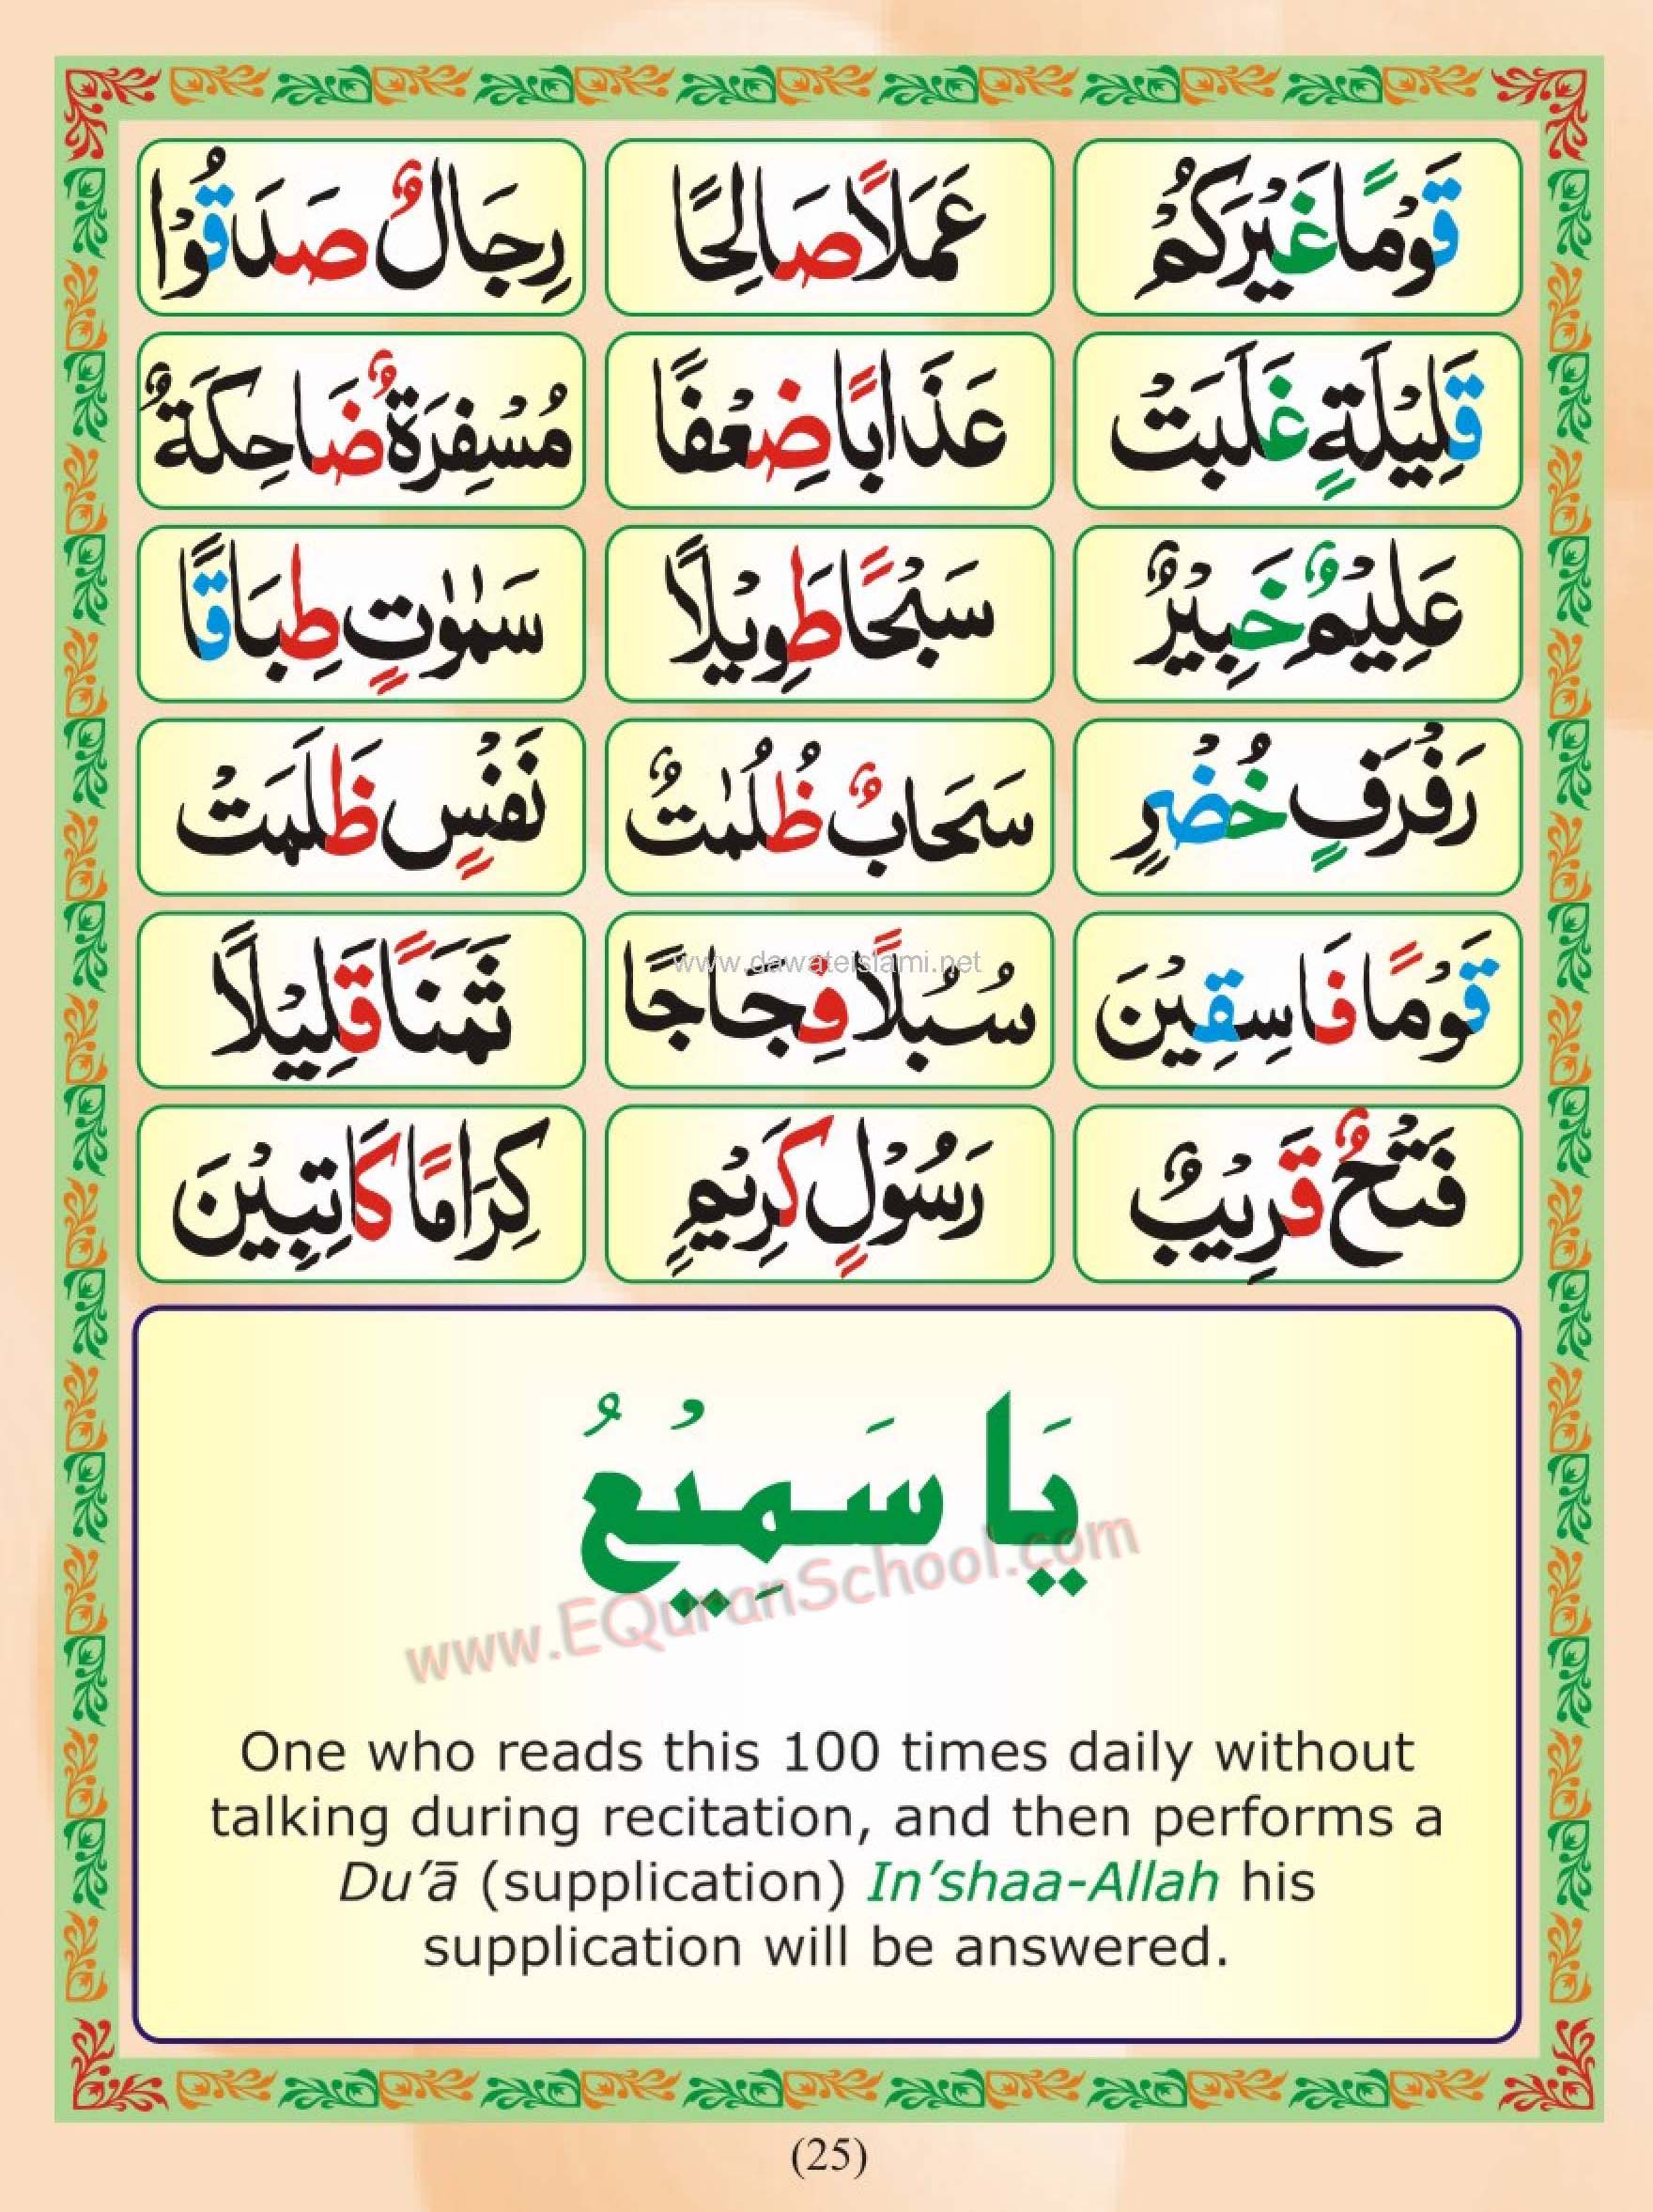 قَوْمًا غَيْرَكُمْ عَمَلًا صَالِحًا رِجَالٌ صَدَقُوْا
قَلِيْلَةٍ غَلَبَتْ عَذَابًا ضِعْفًا مُسْفِرَةٌ ضَاحِكَةٌ
عَلِيْمٌ خَبِيْرٌ سَبْحًا طَوِيْلًا سَمٰوٰتٍ طِبَاقًا
رَفْرَفٍ خُضْرٍ سَحَابٌ ظُلُمٰتٌ نَفْسٍ ظَلَمَتْ
قَوْمًا فَاسِقِيْنَ سُبُلًا فِجَاجًا ثَمَنًا قَلِيْلًا
www.dawateislami.net
فَتْحٌ قَرِيْبٌ رَسُوْلٍ كَرِيْمٍ كِرَامًا كَاتِبِيْنَ
يَا سَمِيْعُ
www.EQuranSchool.com
One who reads this 100 times daily without
talking during recitation, and then performs a
Du’ā (supplication) In’shaa-Allah his
supplication will be answered.
(25)